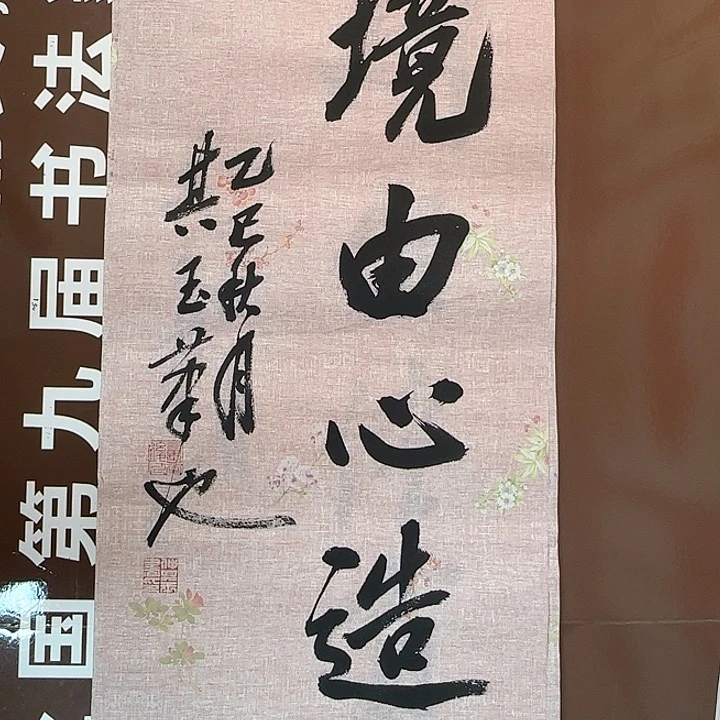 境由心造
乙巳秋月
其玉
也
国第九届书法